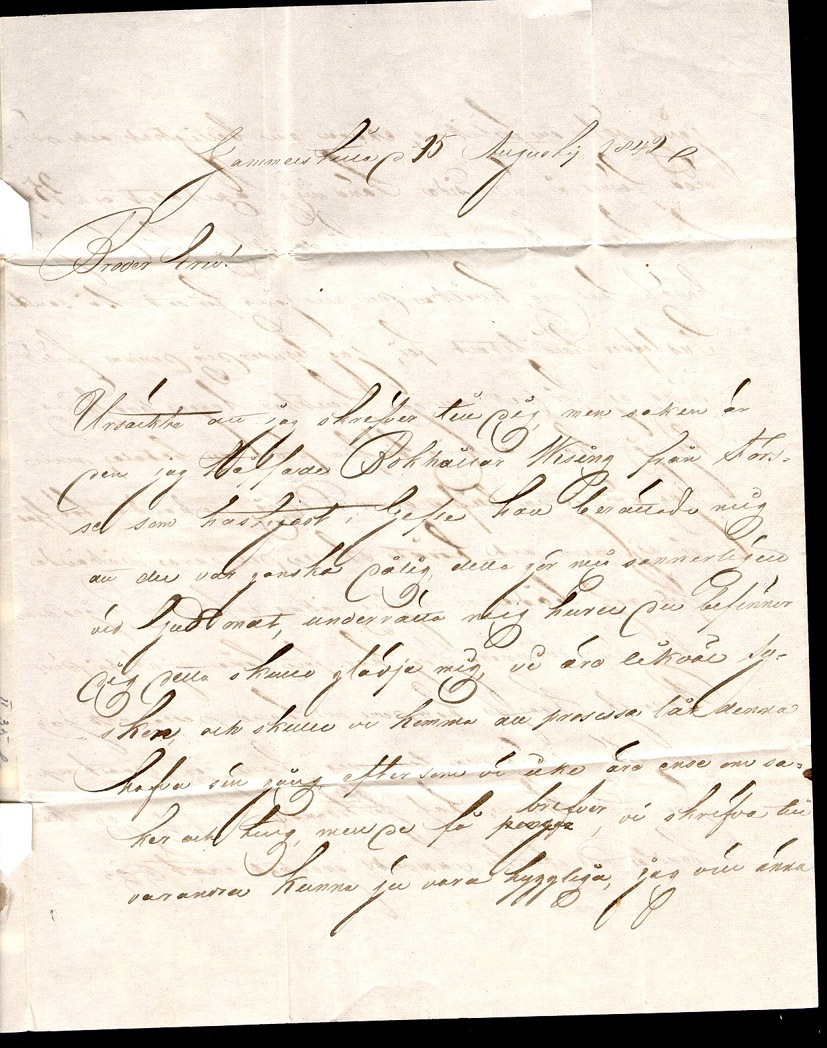 Gammelstilla d 15 Augusty 1842
Broder Eric!
Ursäckta att jag skrifver till dig, men saken är
den jag träffade Bokhållar Wising från Fors-
sa som hastigast i Gefle han berättade mig
att du var ganska dålig, detta gör mig sannerligen
ondt, underrätta mig huru du befinner
dig detta skulle glädja mig, vi äro likväl sy-
sken, och skulle vi komma att prosessa låt denna
hafva sin gång eftersom vi icke äro ense om sa-
ker och ting, men de få brefver, vi skrifva till
varandra kunna ju vara hyggliga, jag vill ännu